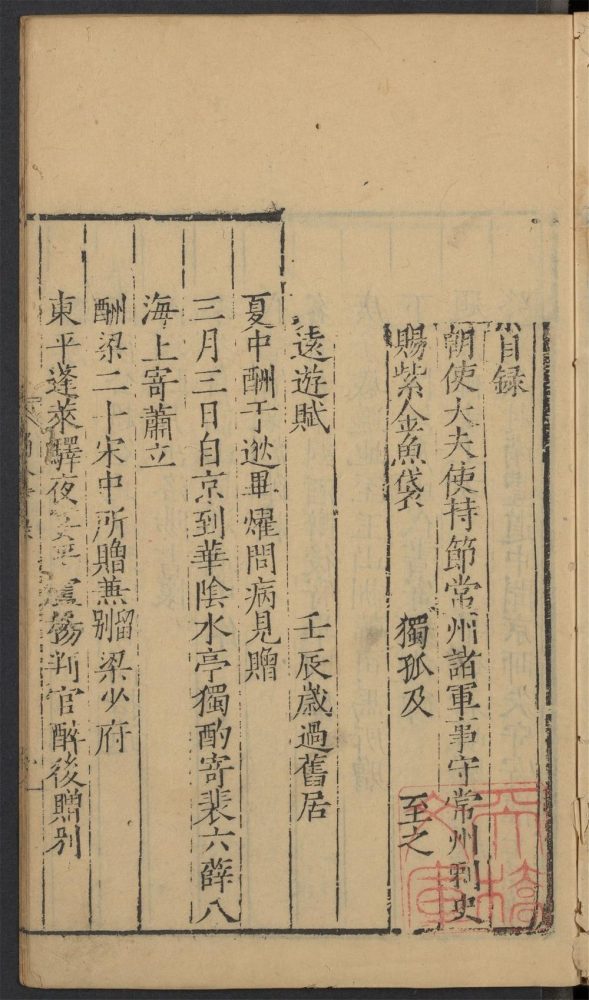 目録
朝使大夫使持節常州諸軍事守常州刺史
賜紫金魚袋 獨孤及 至之
遠遊賦 壬辰歲過舊居
夏中酬于逖畢燿問病見贈
三月三日自京到華陰水亭獨酌寄裴六薛八
海上寄蕭立
酬梁二十宋中所贈兼留別梁少府
東平蓬萊驛夜宴平盧楊判官醉後贈別